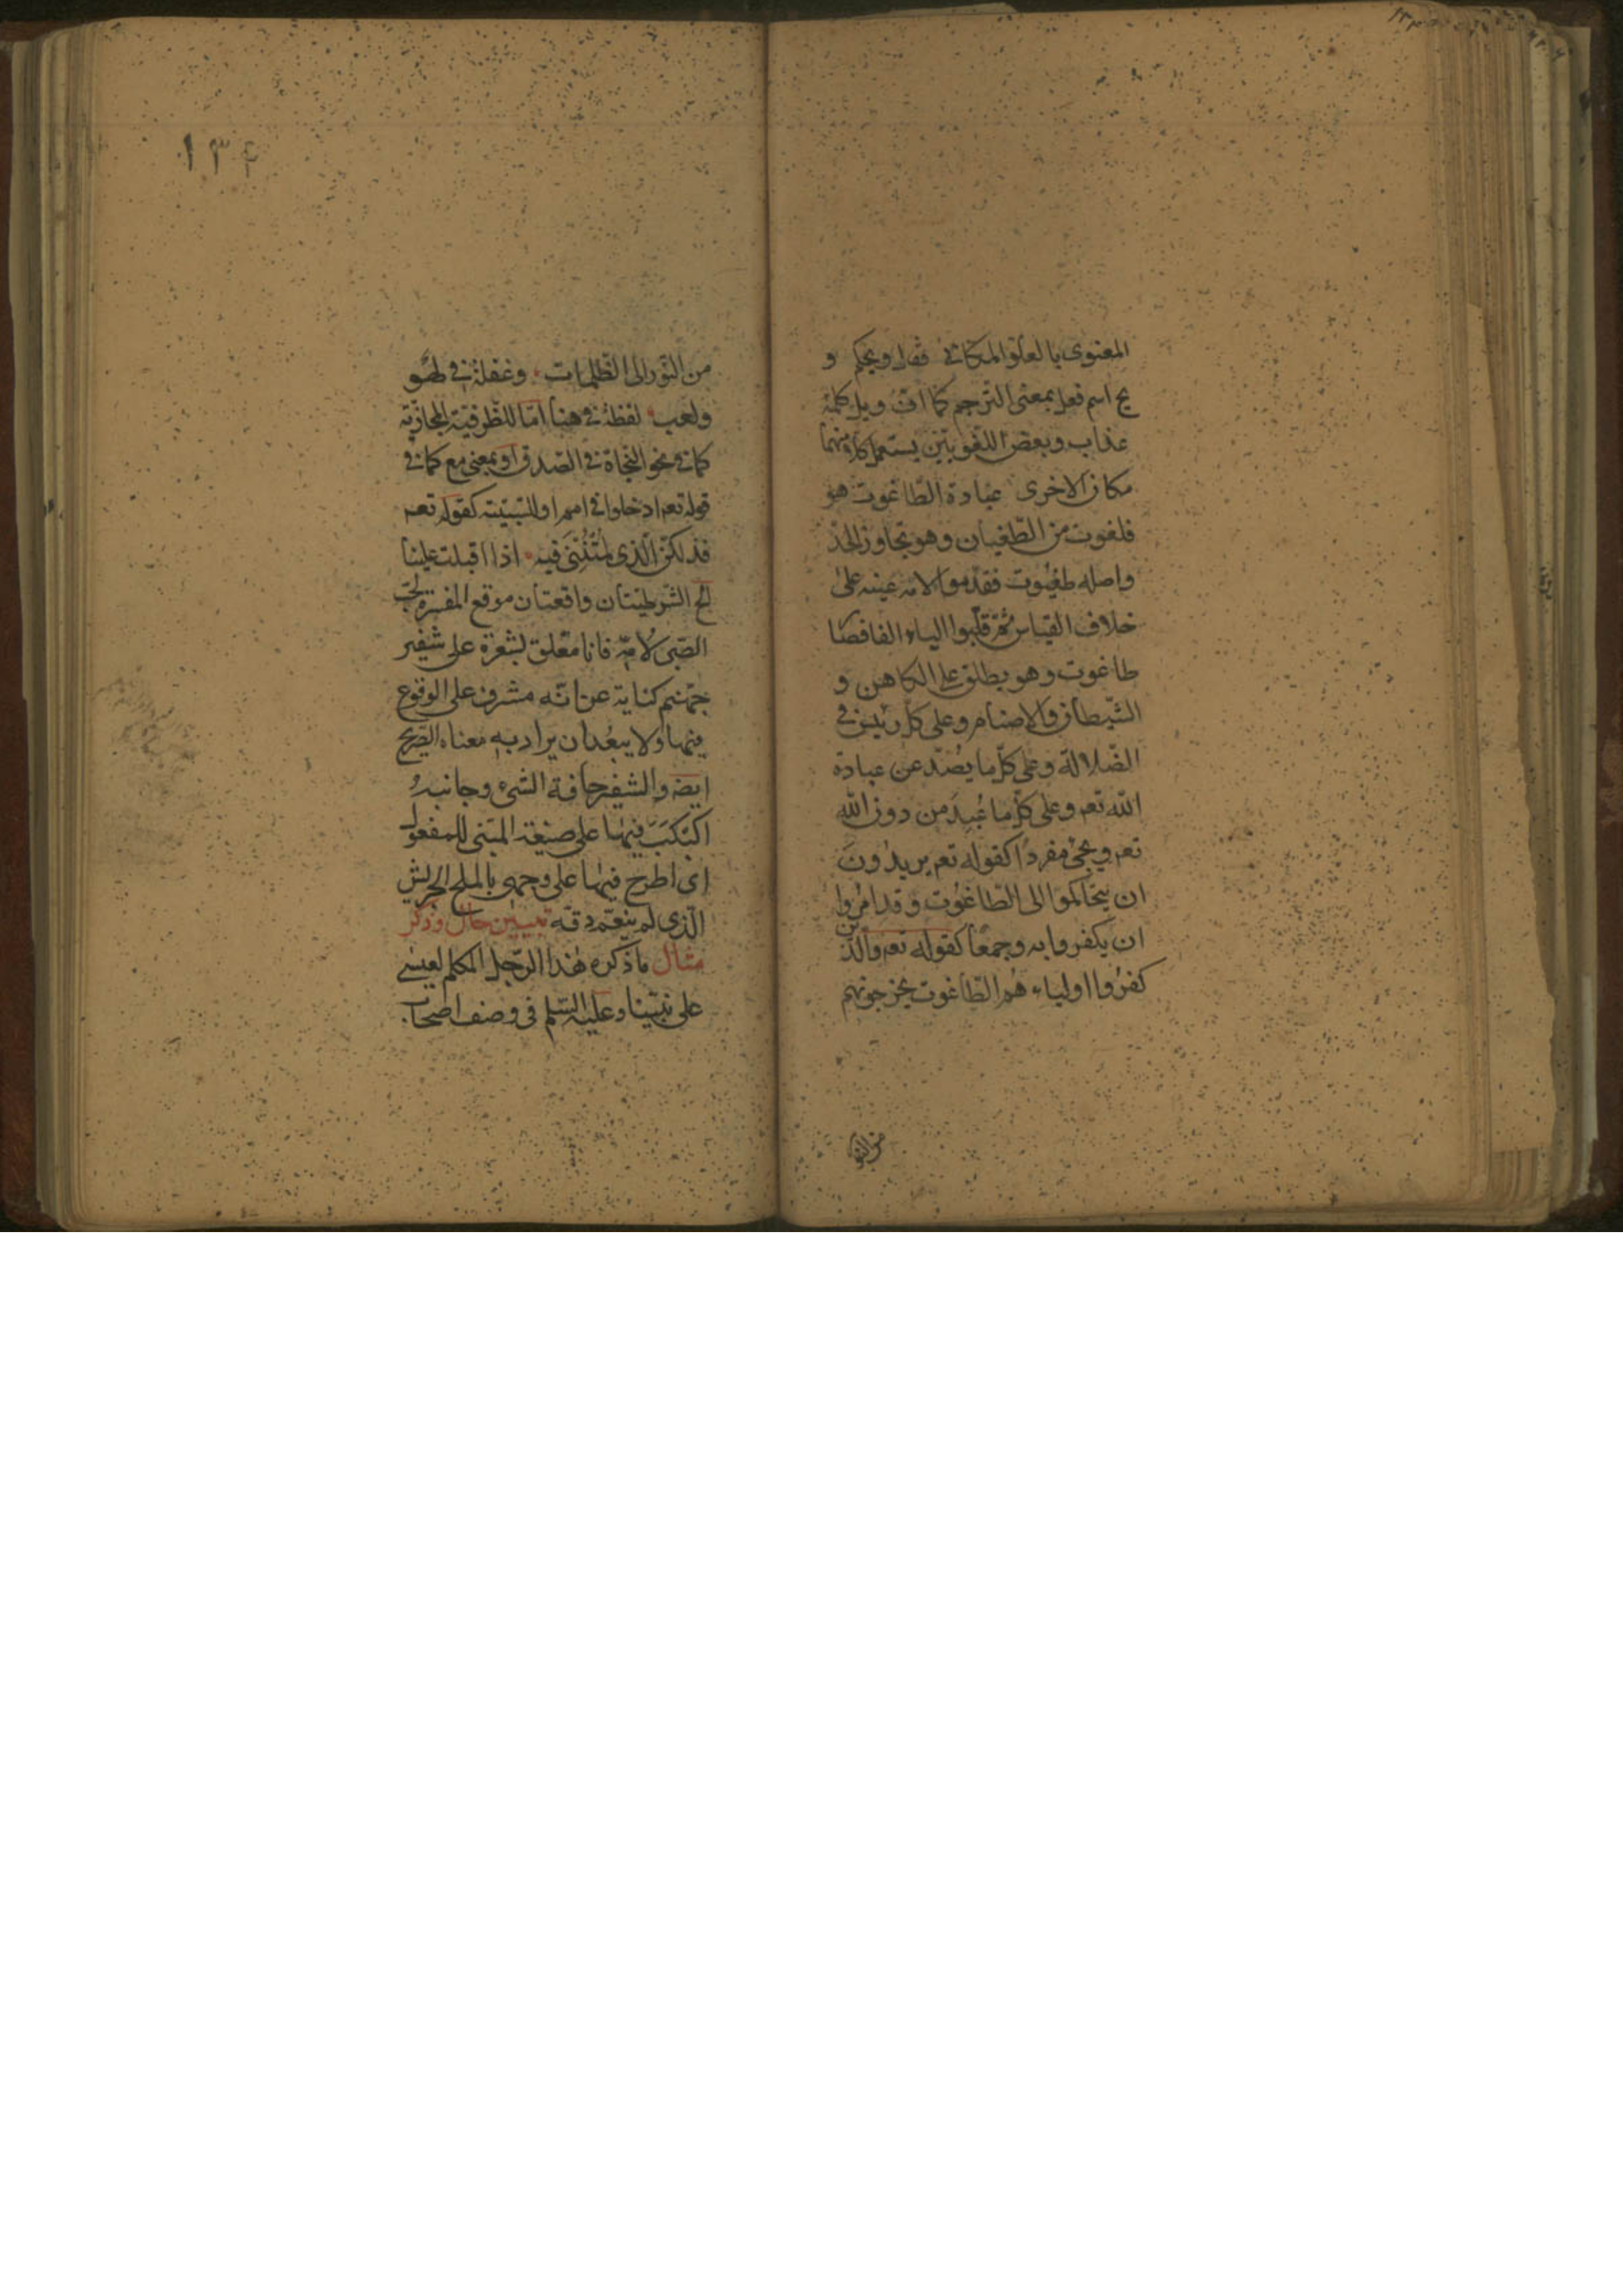 المعنوى بالعلو المكانى فقال ويحكم و
يح اسم فعل بمعنى الترحم كما ان ويل كلمة
عذاب وبعض اللغويين يستعمل كلا منهما
مكان الاخرى عبادة الطاغوت هو
فلعوت من الطغيان وهو تجاوز الحدّ
واصله طغيوت فقدموا لامه عينه على
خلاف القياس ثمّ قلبوا الياء الفا فصار
طاغوت وهو يطلق على الكاهن و
الشيطان والاصنام وعلى كل رئيس فى
الضّلالة وعلى كلّ ما يصدّ عن عبادة
الله تعه وعلى كلّ ما عُبِدَ من دون الله
تعه ويجئ مفردًا كقوله تعه يريدُونَ
ان يتحاكموا الى الطاغوت وقد امُروا
ان يكفروا به وجمعًا كقوله تعه والّذين
كفرُوا اولياءهُم الطّاغوت يخرجونهم
من النو
١٣٤
من النّور الى الظّلمات وغفلة فى لهو
ولعب لفظة فى هنا امّا للظّرفيّة المجازيّة
كما فى نحو النجاة فى الصّدق او بمعنى مع كما فى
قوله تعه ادخلوا فى امم او للسّببيّة كقوله تعه
فذلكنّ الّذى لمتُنّنى فيه اذا اقبلت علينا
الخ الشّرطيّتان واقعتان موقع المفسّرة لحب
الصّبى لامّه فانا متعلّق بشعرة على شفير
جهنم كناية عن انّه مشرف على الوقوع
فيها ولا يبعُد ان يراد به معناه الصّريح
ايضه والشفير حافة الشىء وجانبه
اكبكب فيها على صيغة المبنى للمفعول
اى اطرح فيها على وجهى بالملح الجريش
الّذى لم ينعّم دقّه تبيين حال وذكر
مثال ما ذكره هٰذا الرّجل المكلم لعيسى
على نبيّنا وعليه السّلم فى وصف اصحاب